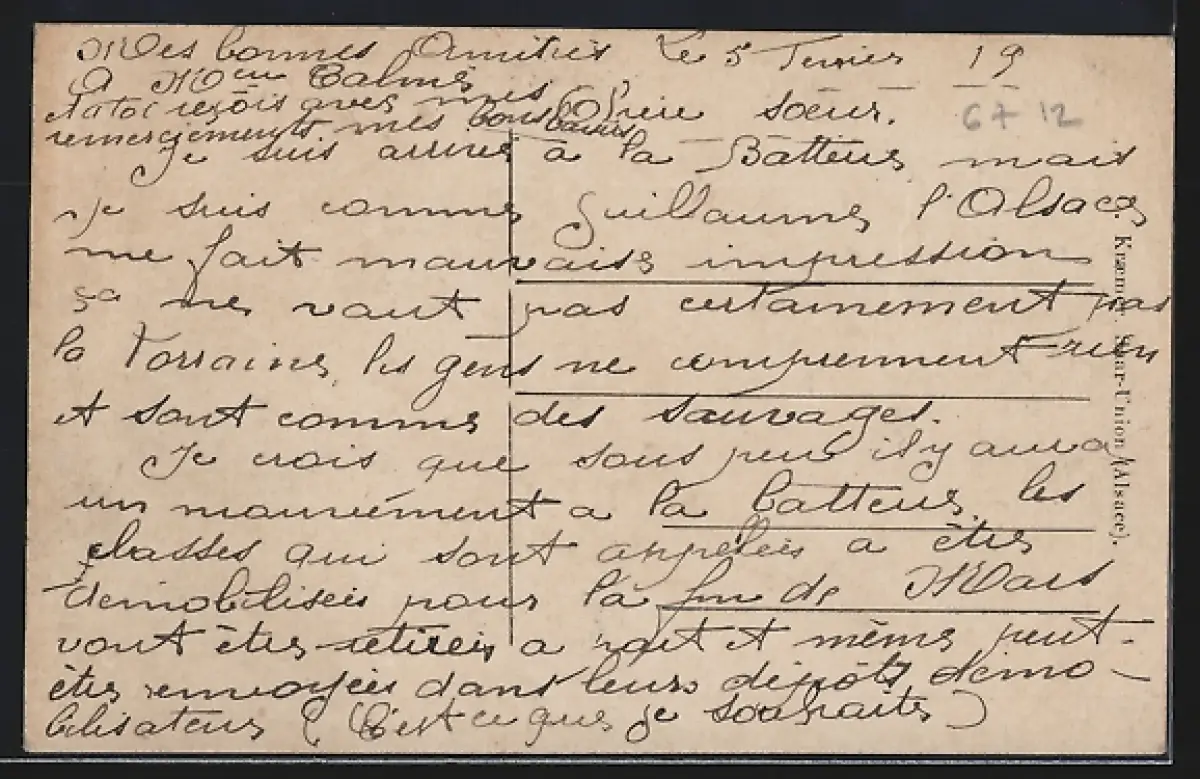 Mes bonnes Amitiés Le 5 Fevrier 19
A Mme Calmé
et a toi reçois avec mes Chère sœur.
remerciements mes bons baisers 67 12
Je suis arrivé a la Batterie mais
je suis comme Guillaume l'Alsace
me fait mauvaise impression
ça ne vaut pas certainement pas
la Lorraine, les gens ne comprennent rien
et sont comme des sauvages.
Je crois que sous peu il y aura
un mouvement a la batterie, les
classes qui sont appelées a être
démobilisées pour la fin de Mars
vont être retirées a part et même peut-
être renvoyées dans leurs dépôts démo-
bilisateur (C'est ce que je souhaite)
Kræmer, Saar-Union (Alsace).